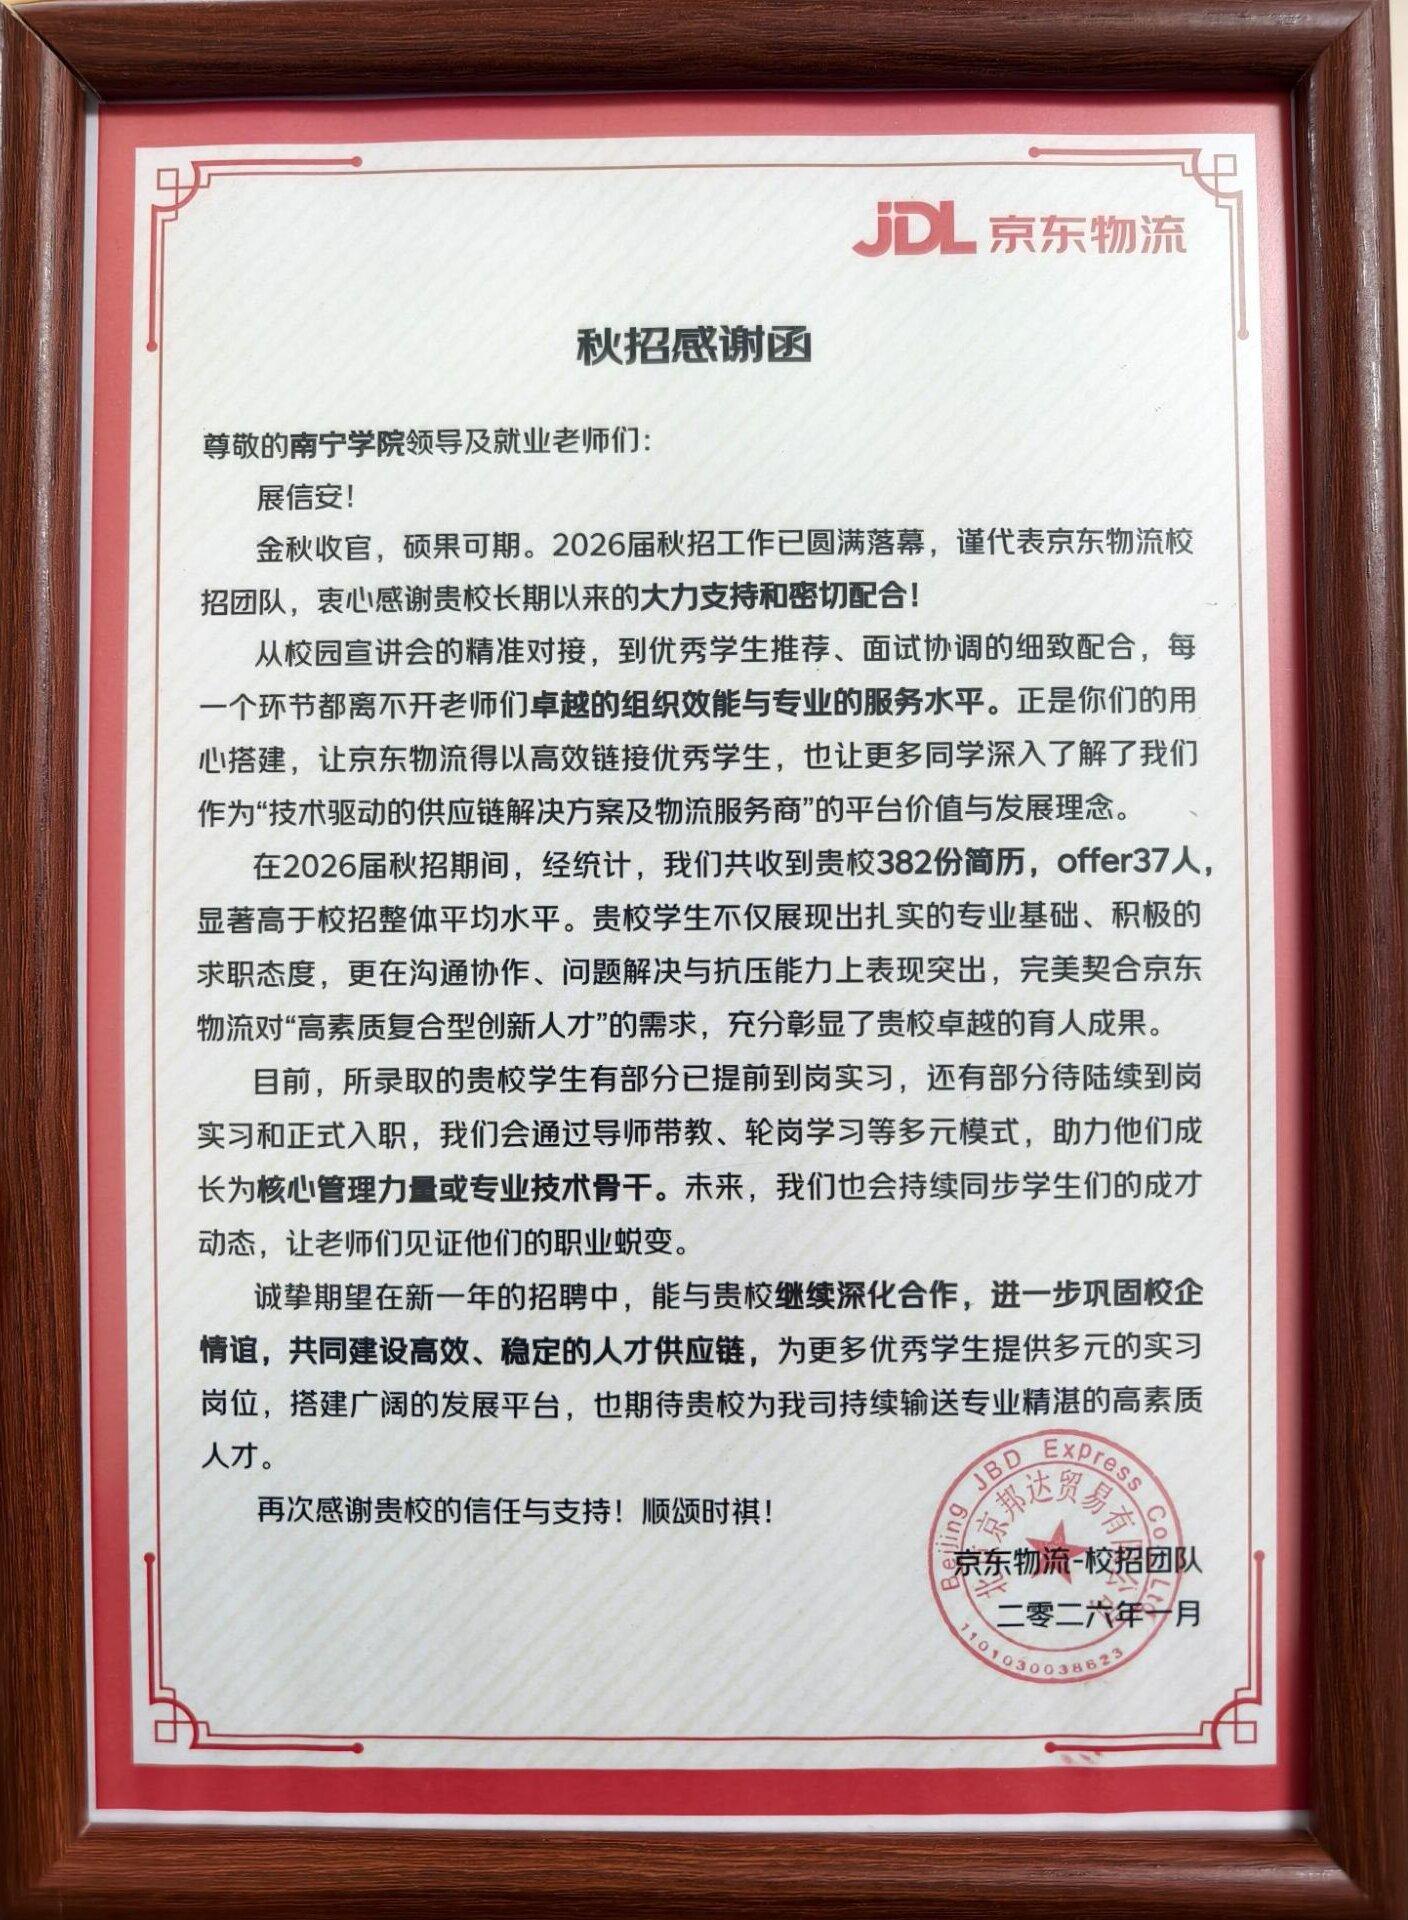 JDL 京东物流
秋招感谢函
尊敬的南宁学院领导及就业老师们：
展信安！
金秋收官，硕果可期。2026届秋招工作已圆满落幕，谨代表京东物流校
招团队，衷心感谢贵校长期以来的大力支持和密切配合！
从校园宣讲会的精准对接，到优秀学生推荐、面试协调的细致配合，每
一个环节都离不开老师们卓越的组织效能与专业的服务水平。正是你们的用
心搭建，让京东物流得以高效链接优秀学生，也让更多同学深入了解了我们
作为“技术驱动的供应链解决方案及物流服务商”的平台价值与发展理念。
在2026届秋招期间，经统计，我们共收到贵校382份简历，offer37人，
显著高于校招整体平均水平。贵校学生不仅展现出扎实的专业基础、积极的
求职态度，更在沟通协作、问题解决与抗压能力上表现突出，完美契合京东
物流对“高素质复合型创新人才”的需求，充分彰显了贵校卓越的育人成果。
目前，所录取的贵校学生有部分已提前到岗实习，还有部分待陆续到岗
实习和正式入职，我们会通过导师带教、轮岗学习等多元模式，助力他们成
长为核心管理力量或专业技术骨干。未来，我们也会持续同步学生们的成才
动态，让老师们见证他们的职业蜕变。
诚挚期望在新一年的招聘中，能与贵校继续深化合作，进一步巩固校企
情谊，共同建设高效、稳定的人才供应链，为更多优秀学生提供多元的实习
岗位，搭建广阔的发展平台，也期待贵校为我司持续输送专业精湛的高素质
人才。
再次感谢贵校的信任与支持！顺颂时祺！
京东物流-校招团队
二零二六年一月
Beijing JBD Express Co Ltd
北京京邦达贸易有限公司
1101030038623